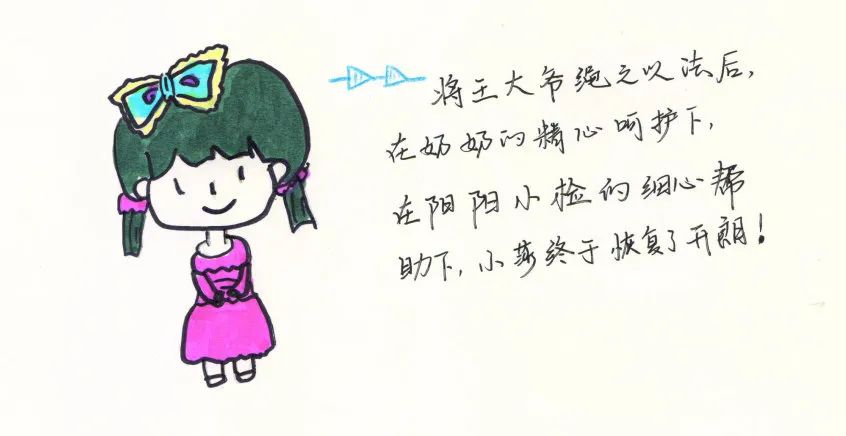 将王大爷绳之以法后,
在奶奶的精心呵护下,
在阳阳小检的细心帮
助下,小莎终于恢复了开朗!